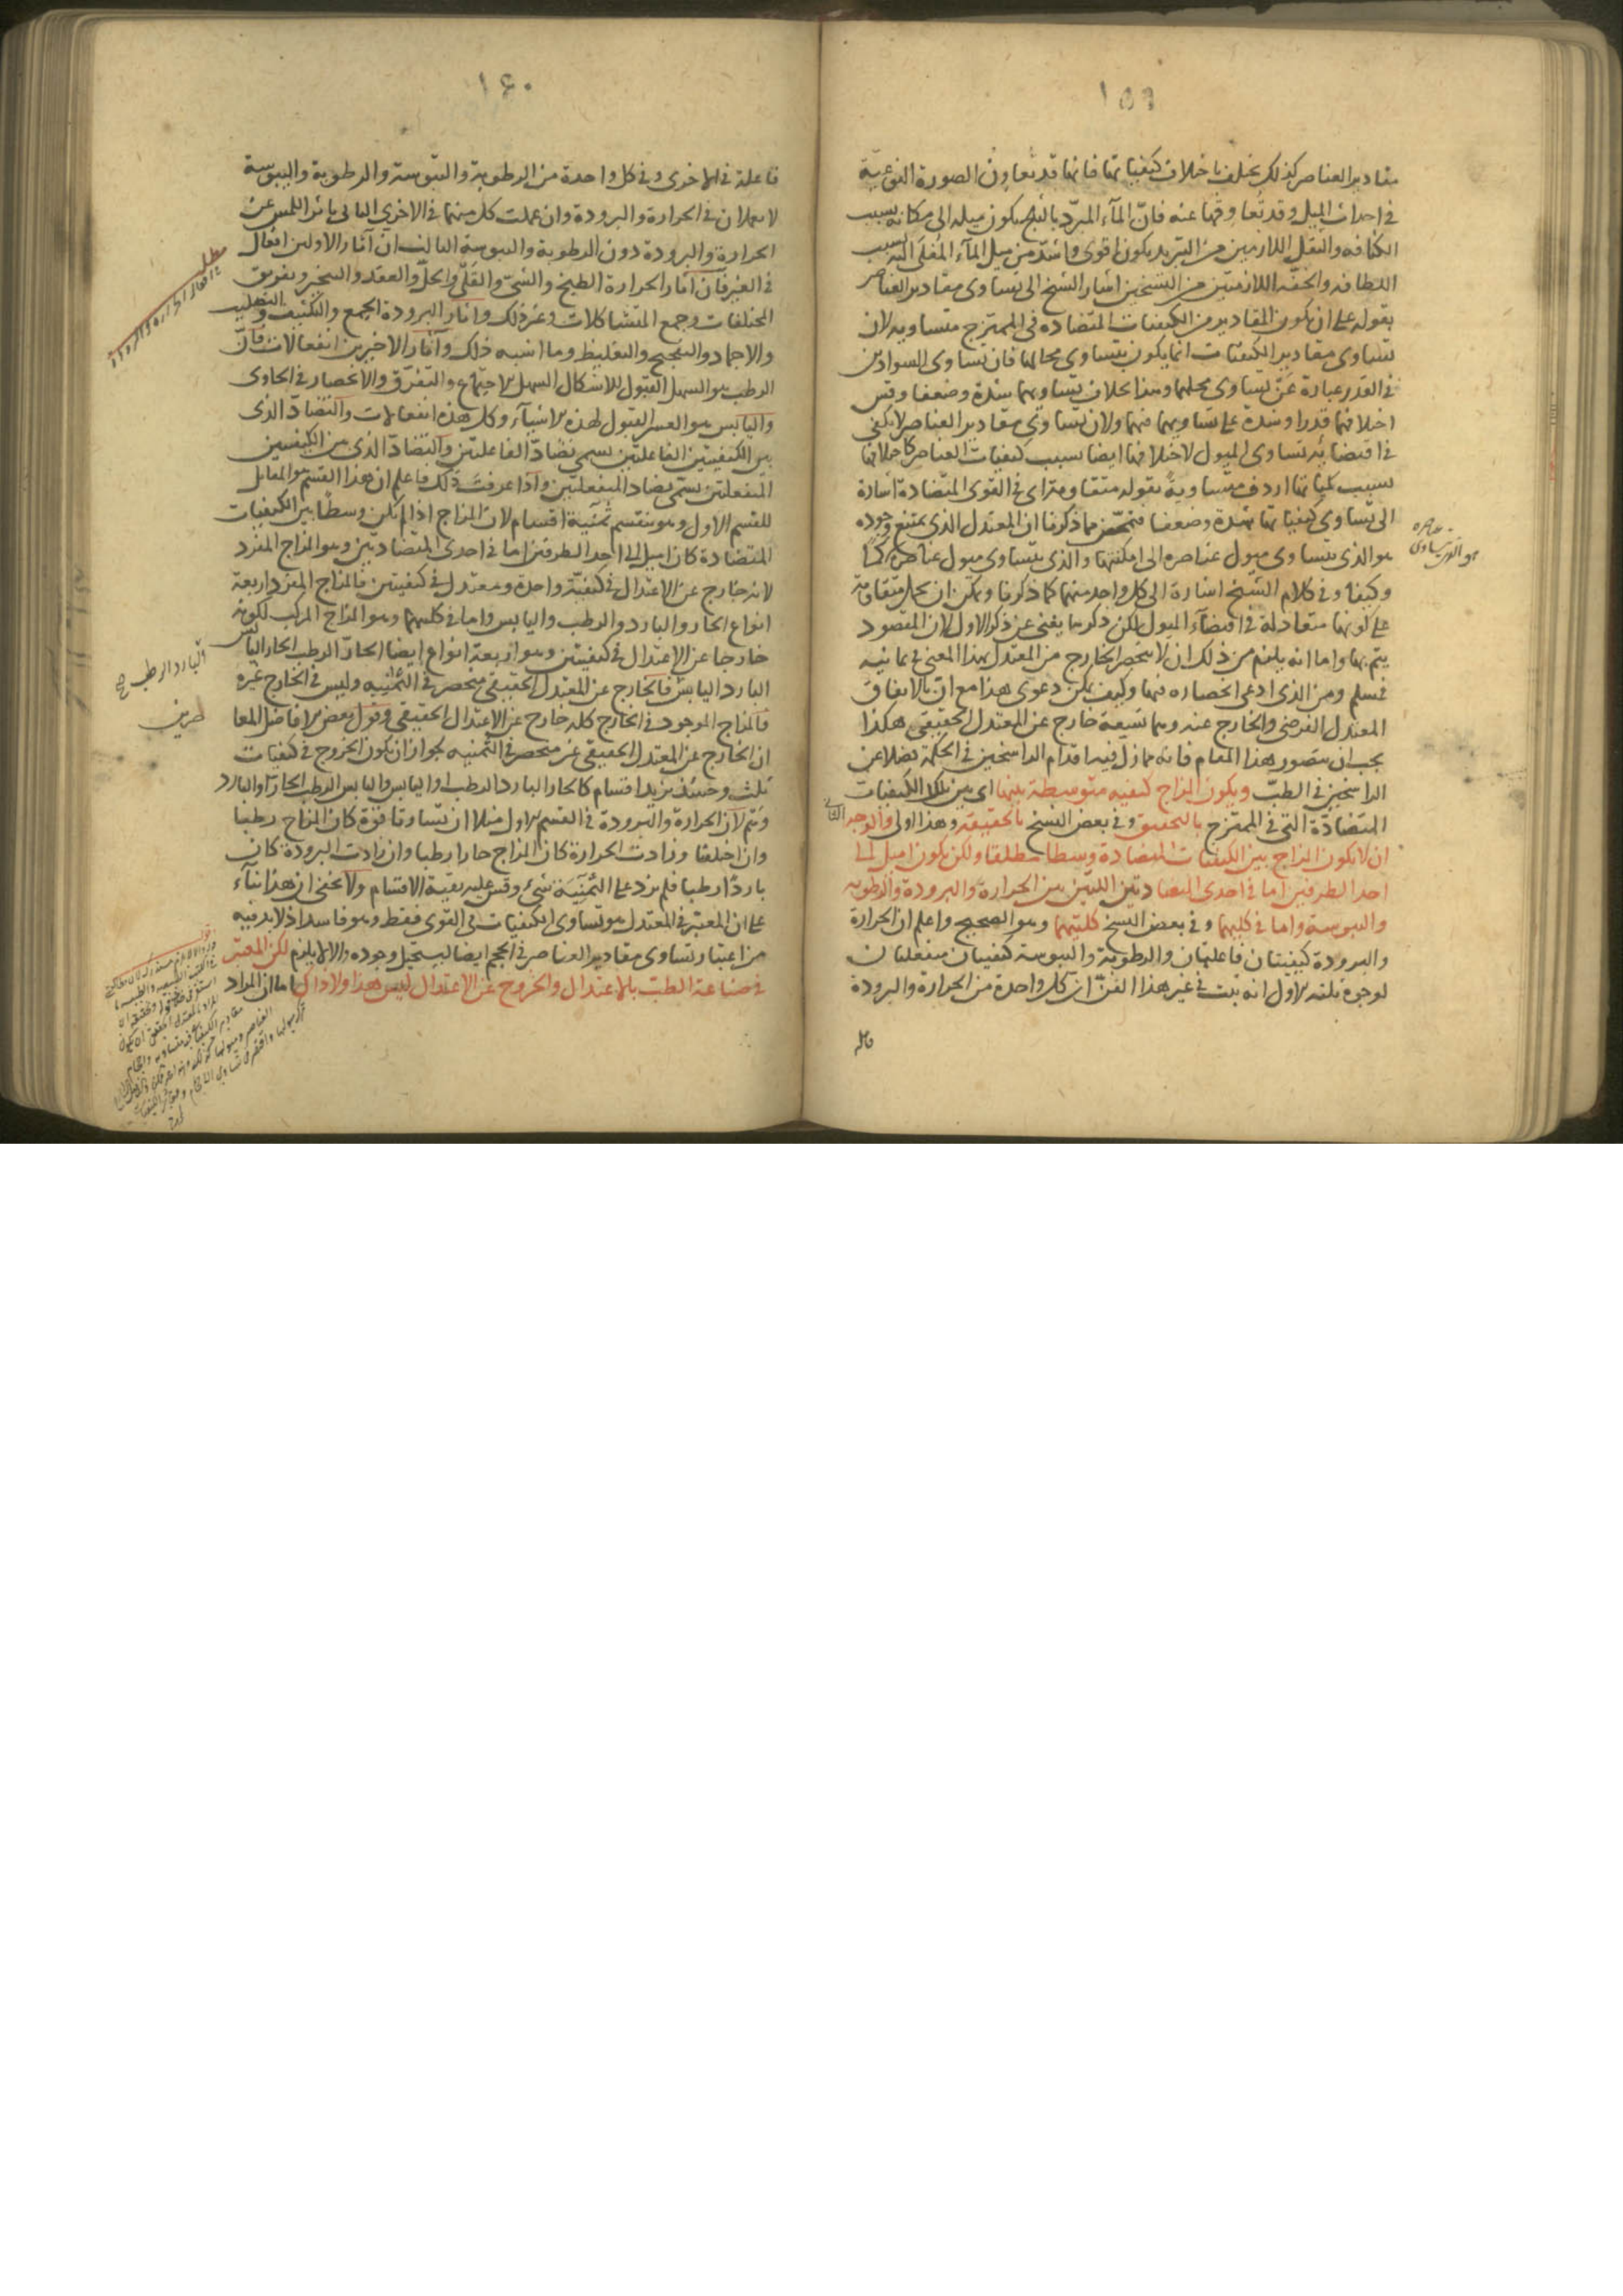 ١٥٩
مقادير العناصر كذلك يختلف باختلاف كيفياتها فانها قد تعاون الصورة النوعية
في احداث الميل وقد تعاوقها عنه فانّ المآء المبرّد بالثلج يكون ميله الى مكانه بسبب
الكثافه والثقل اللازمين من التبريد يكون اقوى واشدّ من ميل المآء المغلى اليه بسبب
اللطافه والخفّه اللازمتين من التسخين اشار الشيخ الى تساوى مقادير العناصر
بقوله على ان يكون المقادير من الكيفيات المتضاده فى الممتزج متساويه لان
تساوى مقادير الكيفيات انما يكون بتساوى محالها فان تساوى السوادين
فى القدر عبارة عن تساوى محلهما وهذا بخلاف تساويهما شدة وضعفا وقس
اختلافهما قدرا وشدة على تساويهما فيهما ولان تساوى مقادير العناصر لا يكفى
فى اقتضائه تساوى الميول لاختلافها ايضا بسبب كيفيات العناصر كاختلافها
بسبب كمياتها اردف متساوية بقوله متقاومة اى فى القوى المتضادة اشارة
الى تساوى كيفياتها شدة وضعفا فتخلص مما ذكرنا ان المعتدل الذى يمتنع وجوده
هو الذى يتساوى ميول عناصره الى امكنتها والذى يتساوى ميول عناصره كمّا
وكيفا وفى كلام الشيخ اشارة الى كل واحد منهما كما ذكرنا ويمكن ان يحمل متقاومة
على كونها متعادلة فى اقتضآء الميول لكن ذكرها يغنى عن ذكر الاول لان المقصود
يتم بها واما انه يلزم من ذلك ان لا ينحصر الخارج من المعتدل بهذا المعنى فى ثمانيه
فمسلم ومن الذى ادعى انحصاره فيها وكيف يمكن دعوى هذا مع ان بالاتفاق
المعتدل الفرضى والخارج عنه وهما تسعة خارج عن المعتدل الحقيقى هكذا
يجب ان يتصور هذا المقام فانه مما زل فيه اقدام الراسخين فى الحكمة فضلا عن
الراسخين فى الطبّ ويكون المزاج كيفيه متوسطة بينها اى بين تلك الكيفيات
المتضادّة التى فى الممتزج بالتحقيق وفى بعض النسخ بالحقيقة وهذا اولى والوجه الثانى
ان لا يكون المزاج بين الكيفيات المتضادة وسطا مطلقا ولكن يكون اميل الى
احد الطرفين اما فى احدى المتضادتين اللتين بين الحرارة والبرودة والرطوبه
واليبوسة واما فى كليهما وفى بعض النسخ كلتيهما وهو الصحيح واعلم ان الحرارة
والبرودة كيفيتان فاعليتان والرطوبة واليبوسة كيفيتان منفعلتان
لوجوه ثلثه الاول انه ثبت فى غير هذا الفنّ ان كل واحدة من الحرارة والبرودة
فاعلة
١٦٠
فاعلة فى الاخرى وفى كل واحدة من الرطوبة واليبوسة والرطوبة واليبوسة
لا يعملان فى الحرارة والبرودة وان عملت كل منهما فى الاخرى الثانى تاثر اللمس عن
الحرارة والبرودة دون الرطوبة واليبوسة الثالث ان آثار الاولين افعال
فى الغير فان آثار الحرارة الطبخ والشىّ والقلى والحلّ والعقد والتبخير وتفريق
المختلفات وجمع المتشاكلات وغير ذلك وآثار البرودة الجمع والتكثيف والتصليب
والاجماد والتفجيج والتغليظ وما اشبه ذلك وآثار الاخيرين انفعالات فان
الرطب هو السهل القبول للاشكال السهل الاجتماع والتفرّق والانحصار فى الحاوى
واليابس هو العسر القبول لهذه الاشيآء وكل هذه انفعالات والتضادّ الذى
بين الكيفيتين الفاعلتين يسمى تضادّ الفاعلتين والتضادّ الذى بين الكيفيتين
المنفعلتين يسمّى تضاد المنفعلتين واذا عرفت ذلك فاعلم ان هذا القسم هو المقابل
للقسم الاول وهو ينقسم ثمنية اقسام لان المزاج اذا لم يكن وسطا بين الكيفيات
المتضادة كان اميل الى احد الطرفين اما فى احدى المتضادتين وهو المزاج المفرد
لانه خارج عن الاعتدال فى كيفيّة واحدة ومعتدل فى كيفيتين فالمزاج المفرد اربعة
انواع الحار والبارد والرطب واليابس واما فى كليهما وهو المزاج المركب لكونه
خارجا عن الاعتدال فى كيفيتين وهو اربعة انواع ايضا الحارّ الرطب الحار اليابس
البارد اليابس فالخارج عن المعتدل الحقيقى منحصر فى الثمنيه وليس فى الخارج غيره
فالمزاج الموجود فى الخارج كله خارج عن الاعتدال الحقيقى وقول بعض الافاضل المعا
ان الخارج عن المعتدل الحقيقى غير منحصر فى الثمنيه لجواز ان يكون الخروج فى كيفيات
ثلث وحينئذ يزيد اقسام كالحار البارد الرطب او اليابس واليابس الرطب الحار او البارد
وَهْم لان الحرارة والبرودة فى القسم الاول مثلا ان تساوتا قوة كان المزاج رطبا
وان اختلفتا وزادت الحرارة كان المزاج حارا رطبا وان زادت البرودة كان
باردا رطبا فلم يزد على الثمنية شىء وقس عليه بقية الاقسام ولا يخفى ان هذا بنآء
على ان المعتبر فى المعتدل هو تساوى الكيفيات فى القوى فقط وهو فاسد اذ لا بد فيه
من اعتبار تساوى مقادير العناصر فى الحجم ايضا ليستحيل وجوده والا لا يلزم لكن المعتبر
فى صناعة الطبّ بالاعتدال والخروج عن الاعتدال ليس هذا ولا ذاك اما ان المراد
البارد الرطب صح